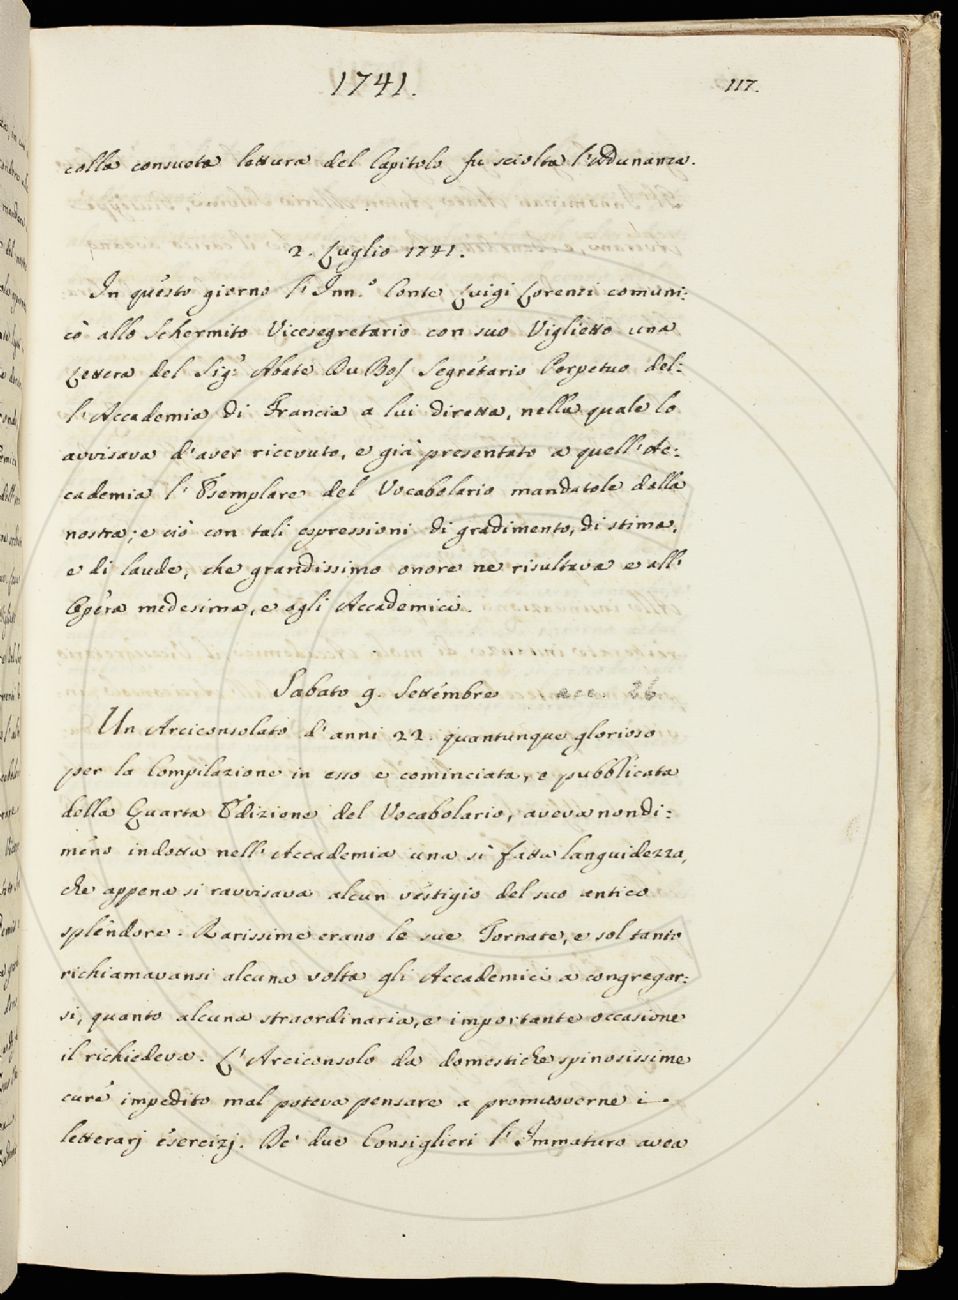 1741.
117.
colla consueta lettura del Capitolo fu sciolta l'adunanza.
2. Luglio 1741.
In questo giorno l'Inn.º Conte Luigi Lorenzi comuni:
cò allo Schermito Vicesegretario con suo Viglietto una
Lettera del Sig.º Abate Du Bos Segretario Perpetuo del:
l'Accademia di Francia a lui diretta, nella quale lo
avvisava d'aver ricevuto, e già presentato a quell'Ac:
cademia l'Esemplare del Vocabolario mandatole dalla
nostra; e ciò con tali espressioni di gradimento, di stima,
e di laude, che grandissimo onore ne risultava e all'
Opera medesima, e agli Accademici.
Sabato 9. Settembre acc. 26
Un Arciconsolato d'anni 22. quantunque glorioso
per la Compilazione in esso e cominciata, e pubblicata
della Quarta Edizione del Vocabolario, aveva nondi:
meno indotta nell'Accademia una sì fatta languidezza,
che appena si ravvisava alcun vestigio del suo antico
splendore. Rarissime erano le sue Tornate, e sol tanto
richiamavansi alcuna volta gli Accademici a congregar:
si, quanto alcuna straordinaria, e importante occasione
il richiedeva. L'Arciconsolo da domestiche spinosissime
cure impedito mal poteva pensare a promuoverne i
letterarj esercizj. De' due Consiglieri l'Immaturo avea